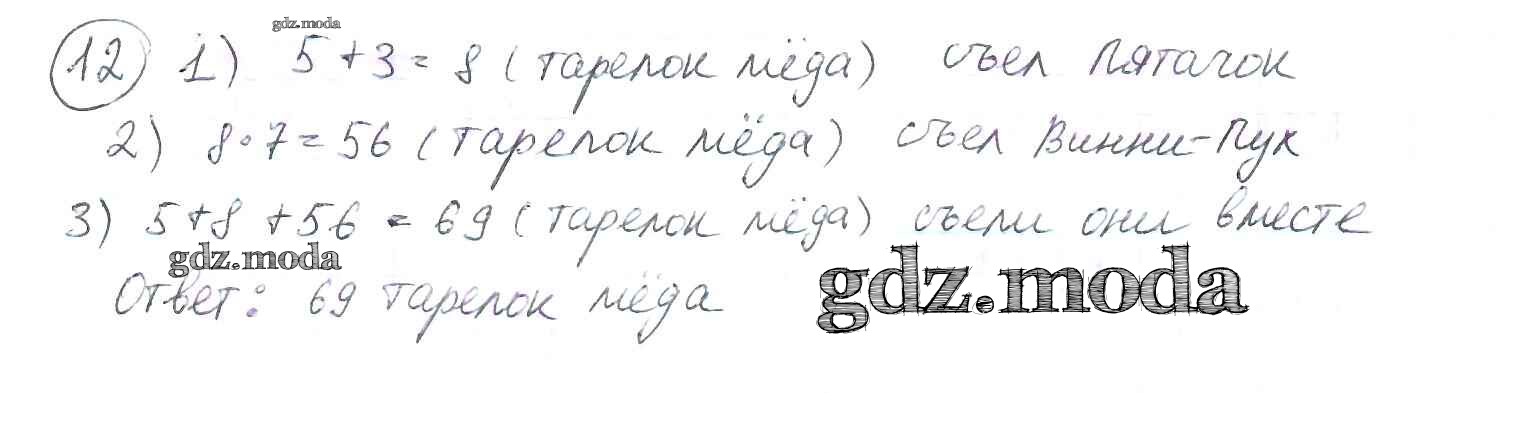 gdz.moda
12 1) 5+3=8 (тарелок мёда) съел Пятачок
2) 8·7=56 (тарелок мёда) съел Винни-Пух
3) 5+8+56=69 (тарелок мёда) съели они вместе
gdz.moda
Ответ: 69 тарелок мёда
gdz.moda